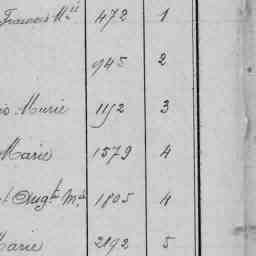 Francois M.ie 472 1
945 2
Marie 1192 3
Marie 1579 4
Aug.te M.ie 1805 4
Marie 2192 5